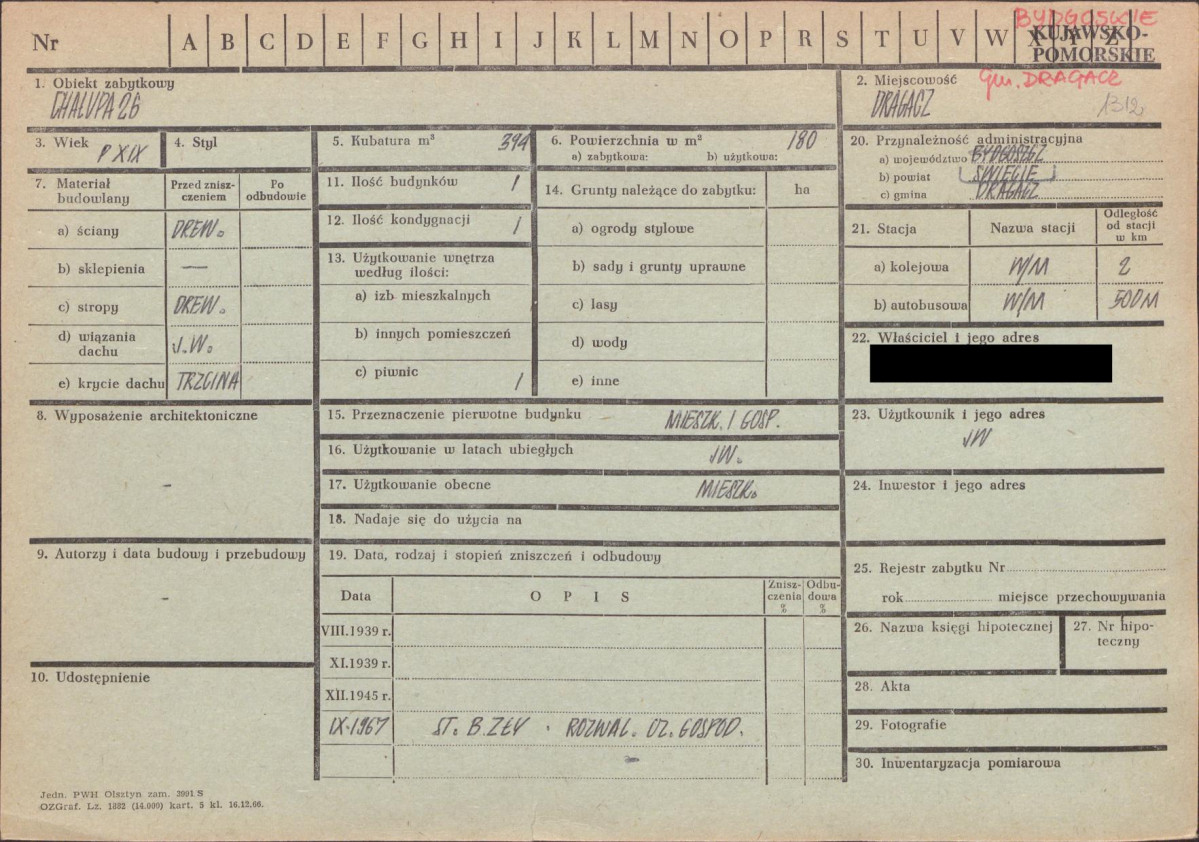 BYDGOSKIE
Nr A B C D E F G H I J K L M N O P R S T U V W X Y Z
KUJAWSKO-
POMORSKIE
1. Obiekt zabytkowy
CHAŁUPA 26
2. Miejscowość
DRAGACZ
Gm. DRAGACZ
1312
3. Wiek P XIX
4. Styl
5. Kubatura m³ 394
6. Powierzchnia w m² 180
a) zabytkowa: b) użytkowa:
20. Przynależność administracyjna
a) województwo BYDGOSZCZ
b) powiat ŚWIECIE
c) gmina DRAGACZ
7. Materiał budowlany
Przed zniszczeniem
Po odbudowie
a) ściany DREW.
b) sklepienia —
c) stropy DREW.
d) wiązania dachu J.W.
e) krycie dachu TRZCINA
11. Ilość budynków 1
12. Ilość kondygnacji 1
13. Użytkowanie wnętrza według ilości:
a) izb mieszkalnych
b) innych pomieszczeń
c) piwnic 1
14. Grunty należące do zabytku: ha
a) ogrody stylowe
b) sady i grunty uprawne
c) lasy
d) wody
e) inne
21. Stacja
Nazwa stacji
Odległość od stacji w km
a) kolejowa W/M 2
b) autobusowa W/M 500 M
22. Właściciel i jego adres
8. Wyposażenie architektoniczne
-
15. Przeznaczenie pierwotne budynku MIESZK. I GOSP.
16. Użytkowanie w latach ubiegłych JW.
17. Użytkowanie obecne MIESZK.
18. Nadaje się do użycia na
23. Użytkownik i jego adres
JW
24. Inwestor i jego adres
9. Autorzy i data budowy i przebudowy
-
19. Data, rodzaj i stopień zniszczeń i odbudowy
Data
OPIS
Zniszczenia %
Odbudowa %
VIII.1939 r.
XI.1939 r.
XII.1945 r.
IX-1967 ST. B. ZŁY . ROZWAL. CZ. GOSPOD.
25. Rejestr zabytku Nr
rok miejsce przechowywania
26. Nazwa księgi hipotecznej
27. Nr hipoteczny
10. Udostępnienie
28. Akta
29. Fotografie
30. Inwentaryzacja pomiarowa
Jedn. PWH Olsztyn zam. 3991 S
OZGraf. Lz. 1882 (14.000) kart. 5 kl. 16.12.66.